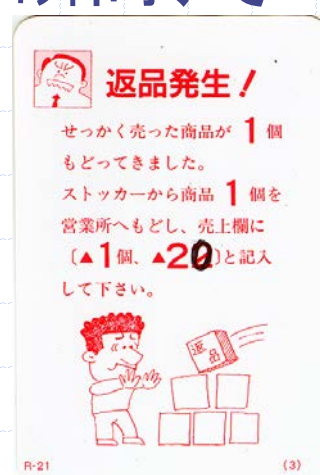 返品発生!
せっかく売った商品が 1 個
もどってきました。
ストッカーから商品 1 個を
営業所へもどし、売上欄に
〔▲1個、▲20〕と記入
して下さい。
返品
R-21 (3)